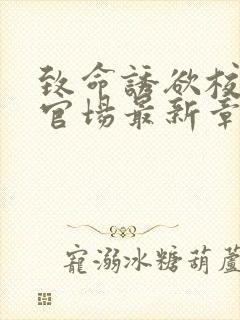 致命誘欲校
官場最新章
寵溺冰糖葫蘆